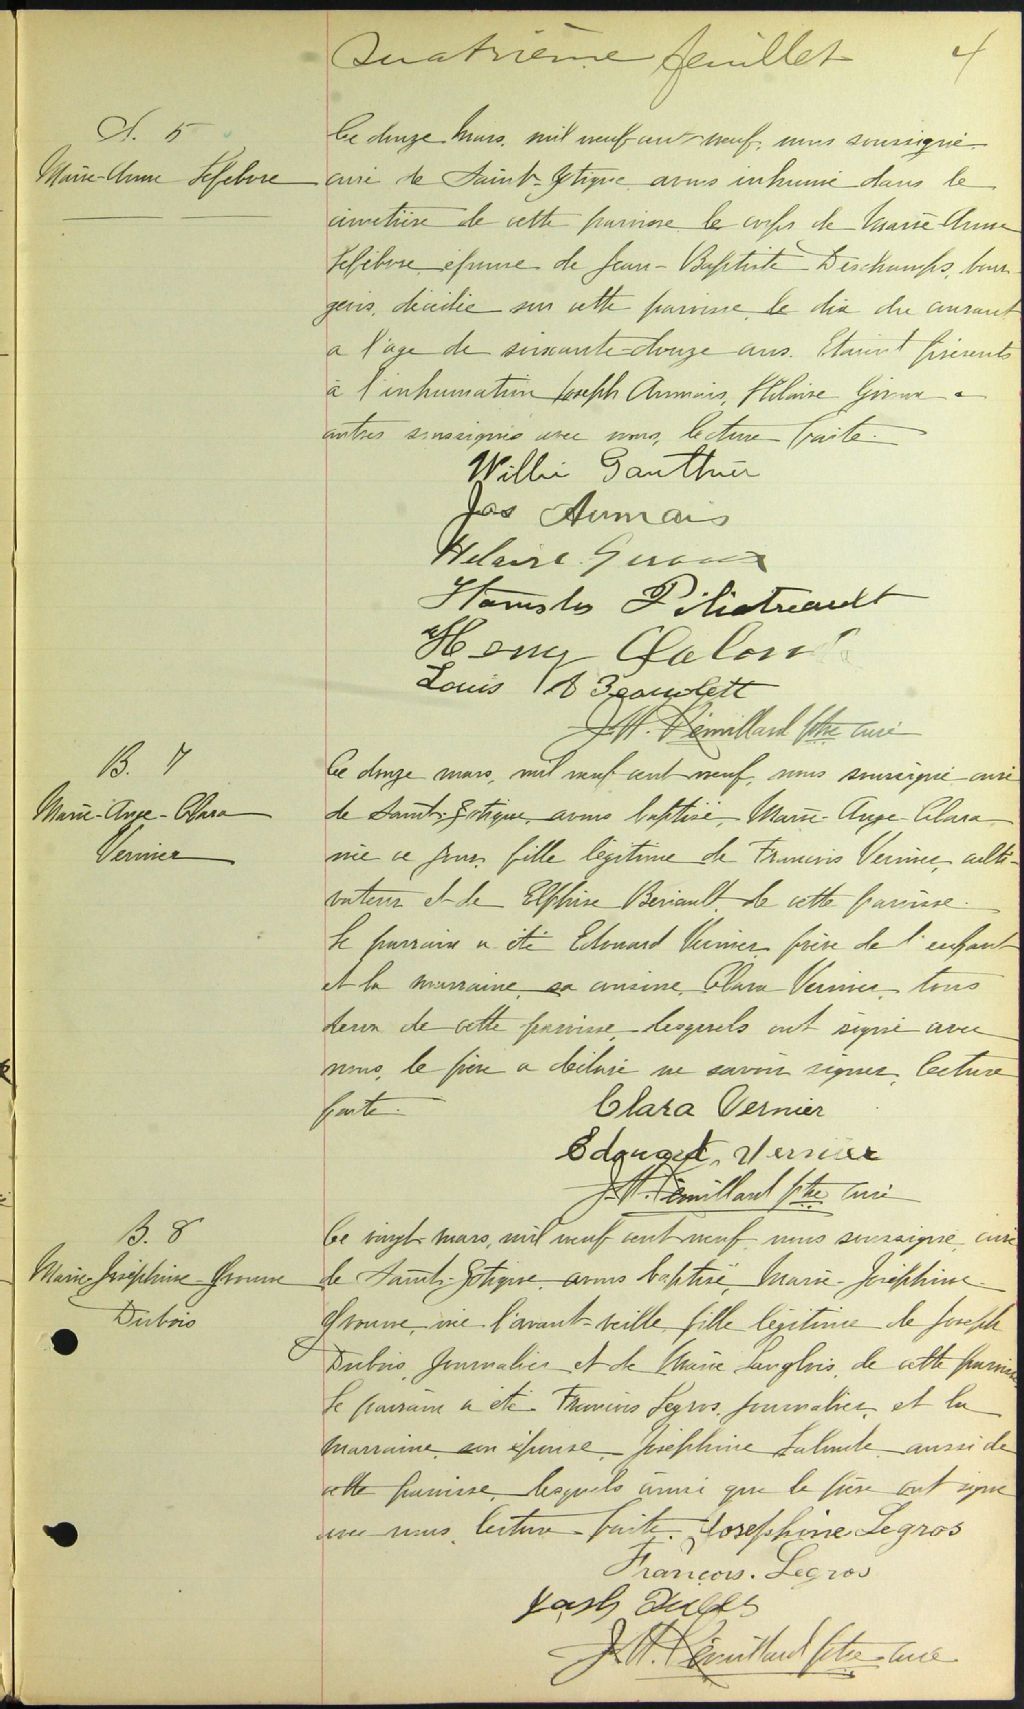 Quatrième feuillet 4
S. 5
Marie-Anne Lefebvre
Ce douze mars, mil neuf cent neuf, nous soussigné
curé de Saint-Zotique avons inhumé dans le
cimetière de cette paroisse le corps de Marie-Anne
Lefebvre épouse de Jean-Baptiste Deschamps, bour-
geois, décédée sur cette paroisse le dix du courant
a l'age de soixante-douze ans. Etaient présents
à l'inhumation Joseph Aumais, Hilaire Giroux &
autres soussignés avec nous, lecture faite.
Willie Gauthier
Jos Aumais
Helaire Giroux
Stanislas Piliatreault
Henry Lalond
Louis A Beaulett
J.H. Rémillard ptre curé
B. 7
Marie-Ange-Clara
Vernier
Ce douze mars, mil neuf cent neuf, nous soussigné curé
de Saint-Zotique, avons baptisé, Marie-Ange-Clara
née ce jour, fille légitime de Francois Vernier, culti-
vateur et de Elphise Beriault, de cette paroisse.
Le parrain a été Edouard Vernier, frère de l'enfant
et la marraine, sa cousine, Clara Vernier, tous
deux de cette paroisse, lesquels ont signé avec
nous, le père a déclaré ne savoir signer, lecture
faite.
Clara Vernier
Edouard Vernier
J.H. Rémillard ptre curé
B. 8
Marie-Joséphine
Dubois
Ce vingt mars, mil neuf cent neuf, nous soussigné, curé
de Saint-Zotique, avons baptisé, Marie-Joséphine-
née l'avant-veille, fille légitime de Joseph
Dubois, journalier et de Marie Langlois, de cette paroisse
Le parrain a été Francois Legros, journalier, et la
marraine, son épouse, Joséphine Lalonde, aussi de
cette paroisse, lesquels ainsi que le père ont signé
avec nous, lecture faite. Josephine Legros
François. Legros
J.H. Rémillard ptre curé